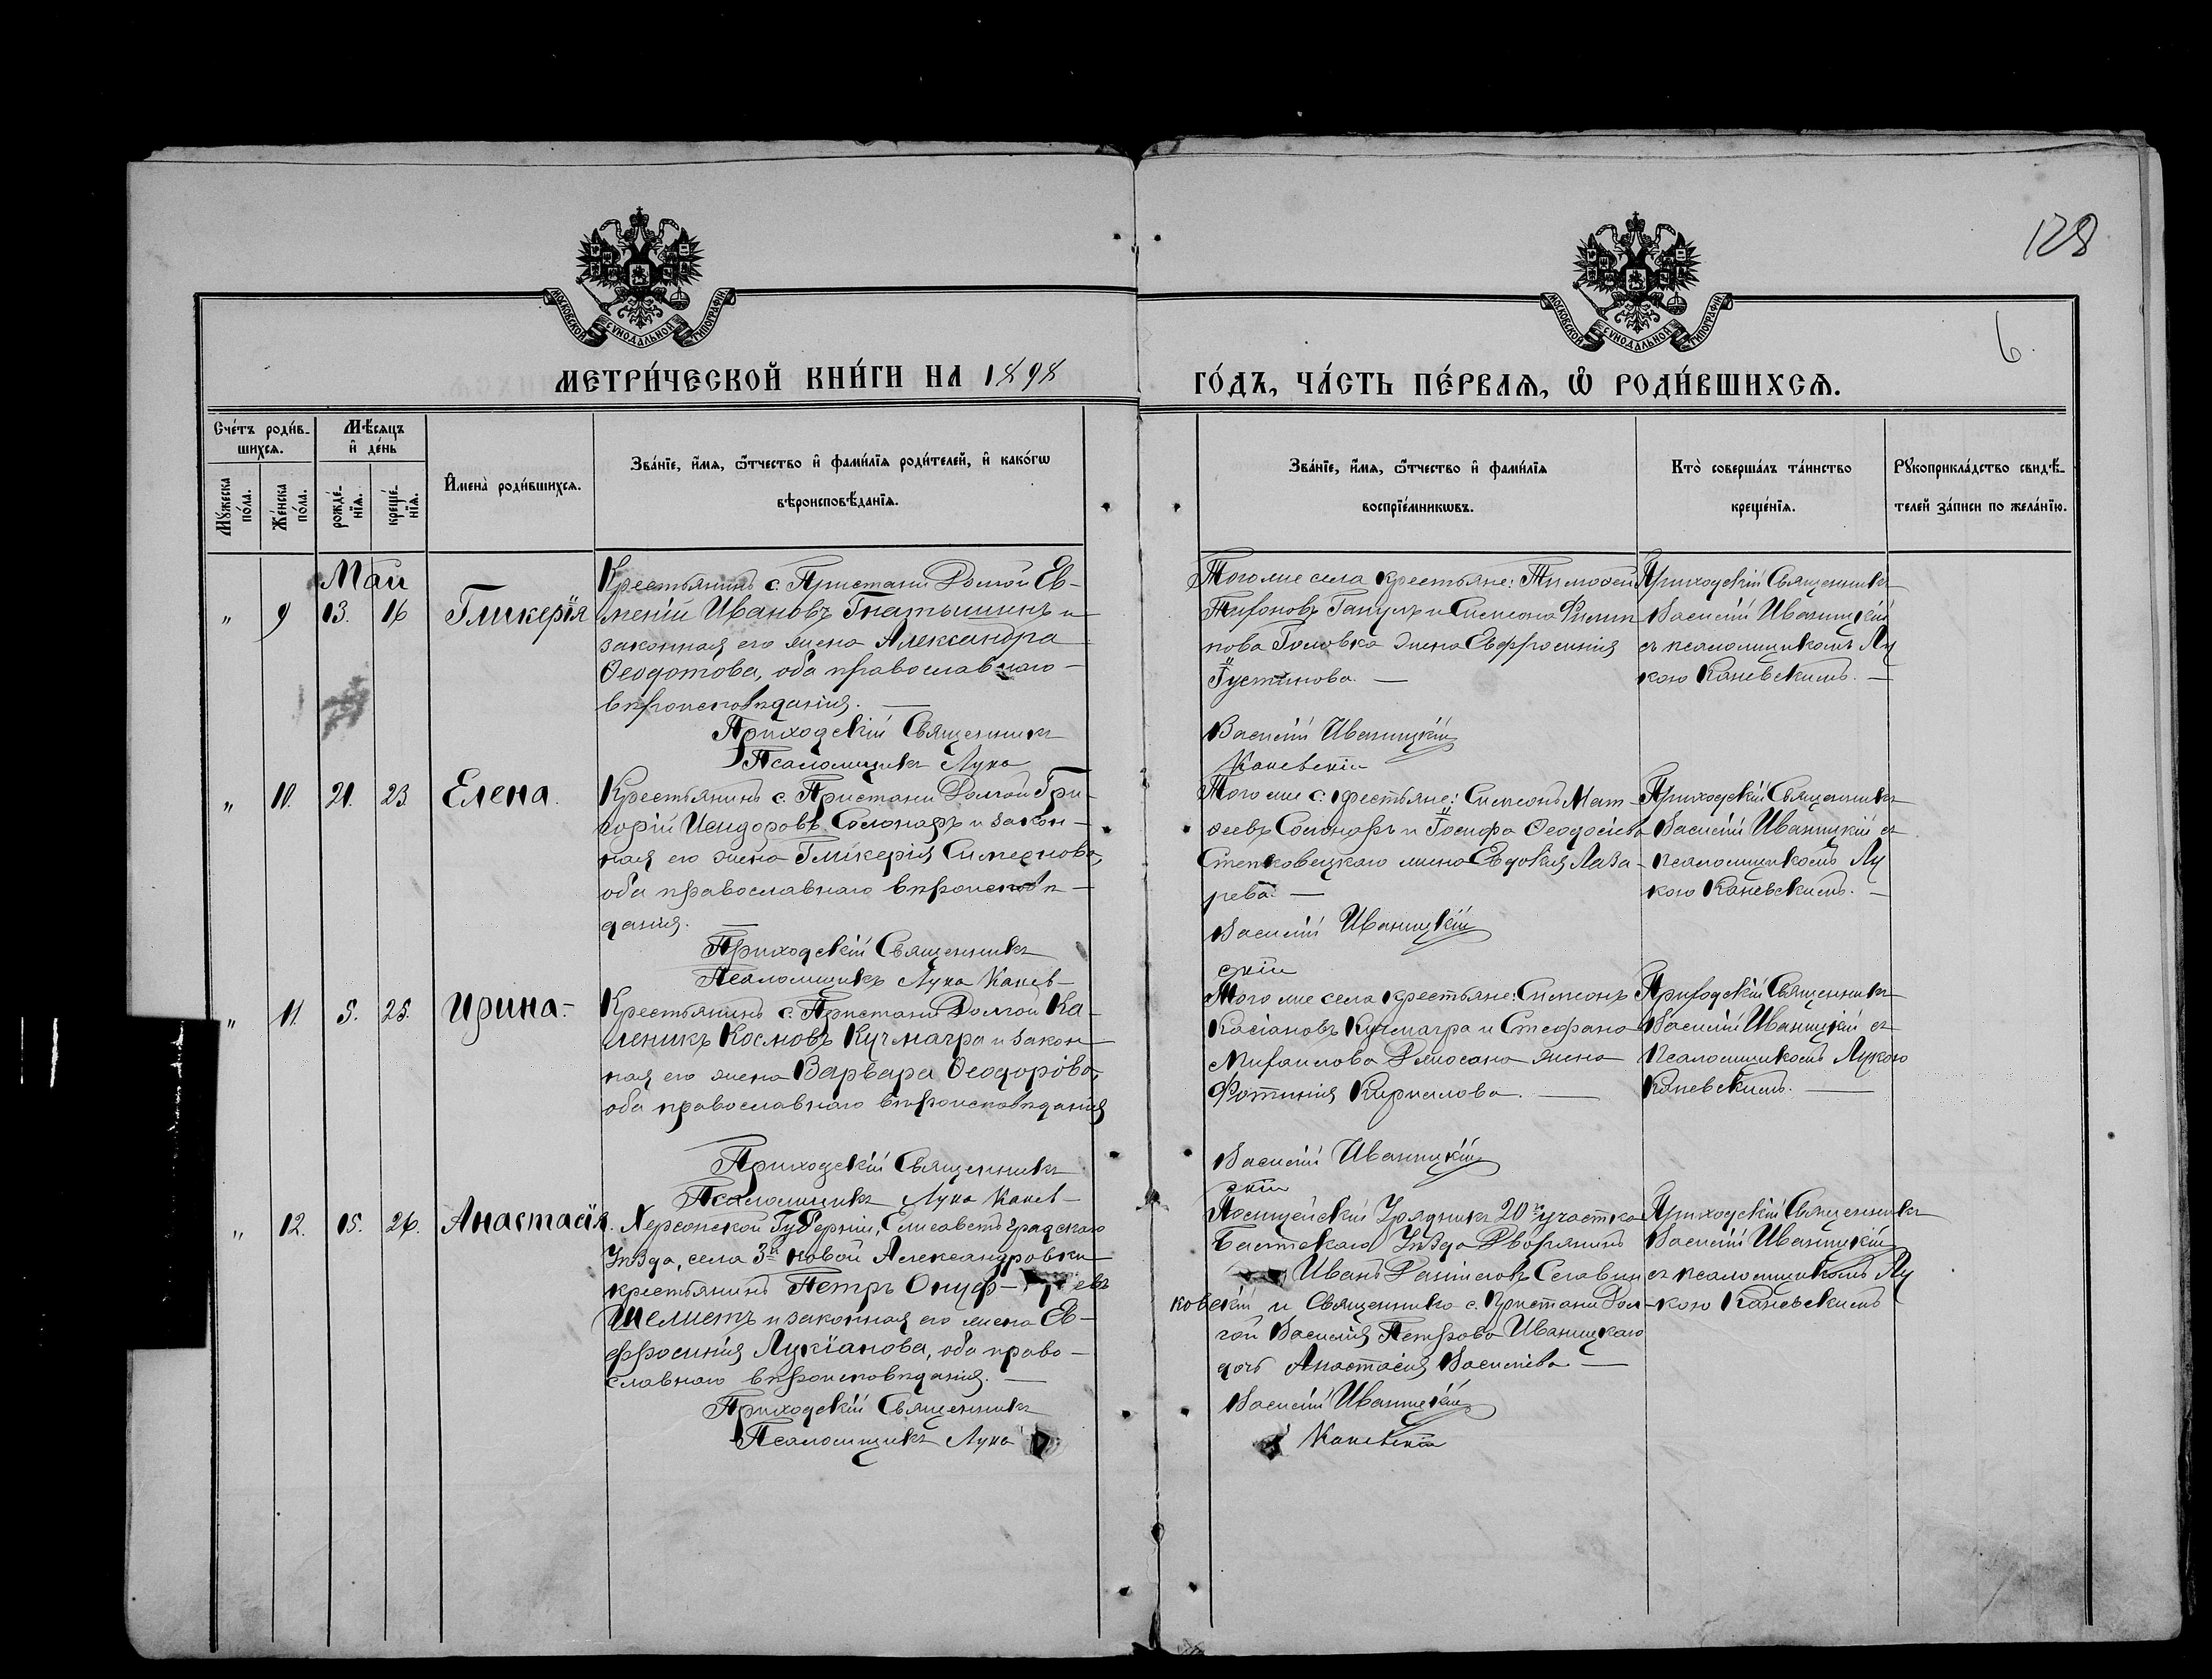 128
6.
МОСКОВСКОЙ СѴНОДАЛЬНОЙ ТИПОГРАФІИ
МОСКОВСКОЙ СѴНОДАЛЬНОЙ ТИПОГРАФІИ
МЕТРИ́ЧЕСКОЙ КНИ́ГИ НА 1898
ГО́ДЪ, ЧА́СТЬ ПЕ́РВАѦ, Ѡ҆ РОДИ́ВШИХСѦ.
Сче́тъ роди́в-
шихсѧ.
Мꙋжеска по́ла.
Же́нска по́ла.
Мѣ́сѧцъ
и҆ де́нь
рожде́-
нїѧ.
креще́-
нїѧ.
И҆мена̀ роди́вшихсѧ.
Зва́нїе, и҆́мѧ, ѻ҆́тчество и҆ фами́лїѧ роди́телей, и҆ како́гѡ
вѣроисповѣ́данїѧ.
Зва́нїе, и҆́мѧ, ѻ҆́тчество и҆ фами́лїѧ
воспрїе́мникѡвъ.
Кто̀ соверша́лъ та́инство
креще́нїѧ.
Рꙋкоприкла́дство свидѣ́-
телей за́писи по жела́нїю.
Май
" 9 13. 16 Гликерія
Крестьянинъ с. Пристани Долгой Ев-
меній Ивановъ Гнатышинъ и
законная его жена Александра
Ѳеодотова, оба православнаго
вѣроисповѣданія. —
Приходскій Священникъ
Псаломщикъ Лука
Тогоже села крестьяне: Тимоѳей
и Симеона Филип
пова Головка жена Евфросинія
Іустинова. —
Василій Иваницкій
Каневскій
Приходскій Священникъ
Василій Иваницкій
съ псаломщикомъ Лу
кою Каневскимъ. —
" 10. 21. 23 Елена.
Крестьянинъ с. Пристани Долгой Гри-
горій Исидоровъ Солонарь и закон-
ная его жена Гликерія Симеонова,
оба православнаго вѣроисповѣ-
данія. —
Приходскій Священникъ
Псаломщикъ Лука Канев-
Того же с. крестьяне: Симеонъ Мат-
ѳеевъ Солонарь и Іосифа Ѳеодосіева
Степковецкаго жена Евдокія Лаза-
рева. —
Василій Иваницкій
скій
Приходскій Священникъ
Василій Иваницкій съ
псаломщикомъ Лу
кою Каневскимъ. —
" 11. 5. 25. Ирина. -
Крестьянинъ с. Пристани Долгой Ка-
леникъ Космовъ Кучмагра и закон-
ная его жена Варвара Ѳеодорова,
оба православнаго вѣроисповѣданія
Приходскій Священникъ
Псаломщикъ Лука Канев-
Того же села крестьяне: Симеонъ
Касіановъ Кучмагра и Стефана
Михаилова жена
Фотинія Кирилова. —
Василій Иваницкій
скій
Приходскій Священникъ
Василій Иваницкій съ
псаломщикомъ Лукою
Каневскимъ. —
" 12. 15. 26. Анастасія.
Херсонской Губерніи, Елисаветградскаго
Уѣзда, села 3й Новой Александровки
крестьянинъ Петръ Онуф- евъ
Шелметъ и законная его жена Ев-
фросинія Лукіанова, оба право-
славнаго вѣроисповѣданія. —
Приходскій Священникъ
Псаломщикъ Лука
Полицейскій Урядникъ 20го участка
Балтскаго Уѣзда Дворянинъ
Иванъ Даніиловъ Славин
ковскій и Священника с. Пристани Дол-
гой Василія Петрова Иваницкаго
дочь Анастасія Васильева. —
Василій Иваницкій
Каневскій
Приходскій Священникъ
Василій Иваницкій
съ псаломщикомъ Лу
кою Каневскимъ